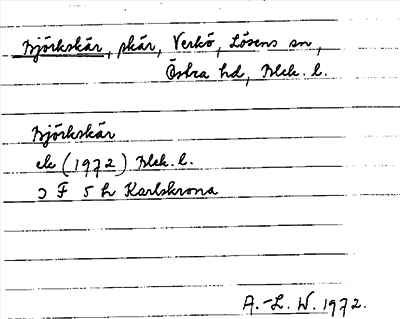 Björkskär, skär, Verkö, Lösens sn,
Östra hd, Blek. l.
Björkskär
ek (1972) Blek. l.
ɔ F 5 h Karlskrona
A.-L. W. 1972.